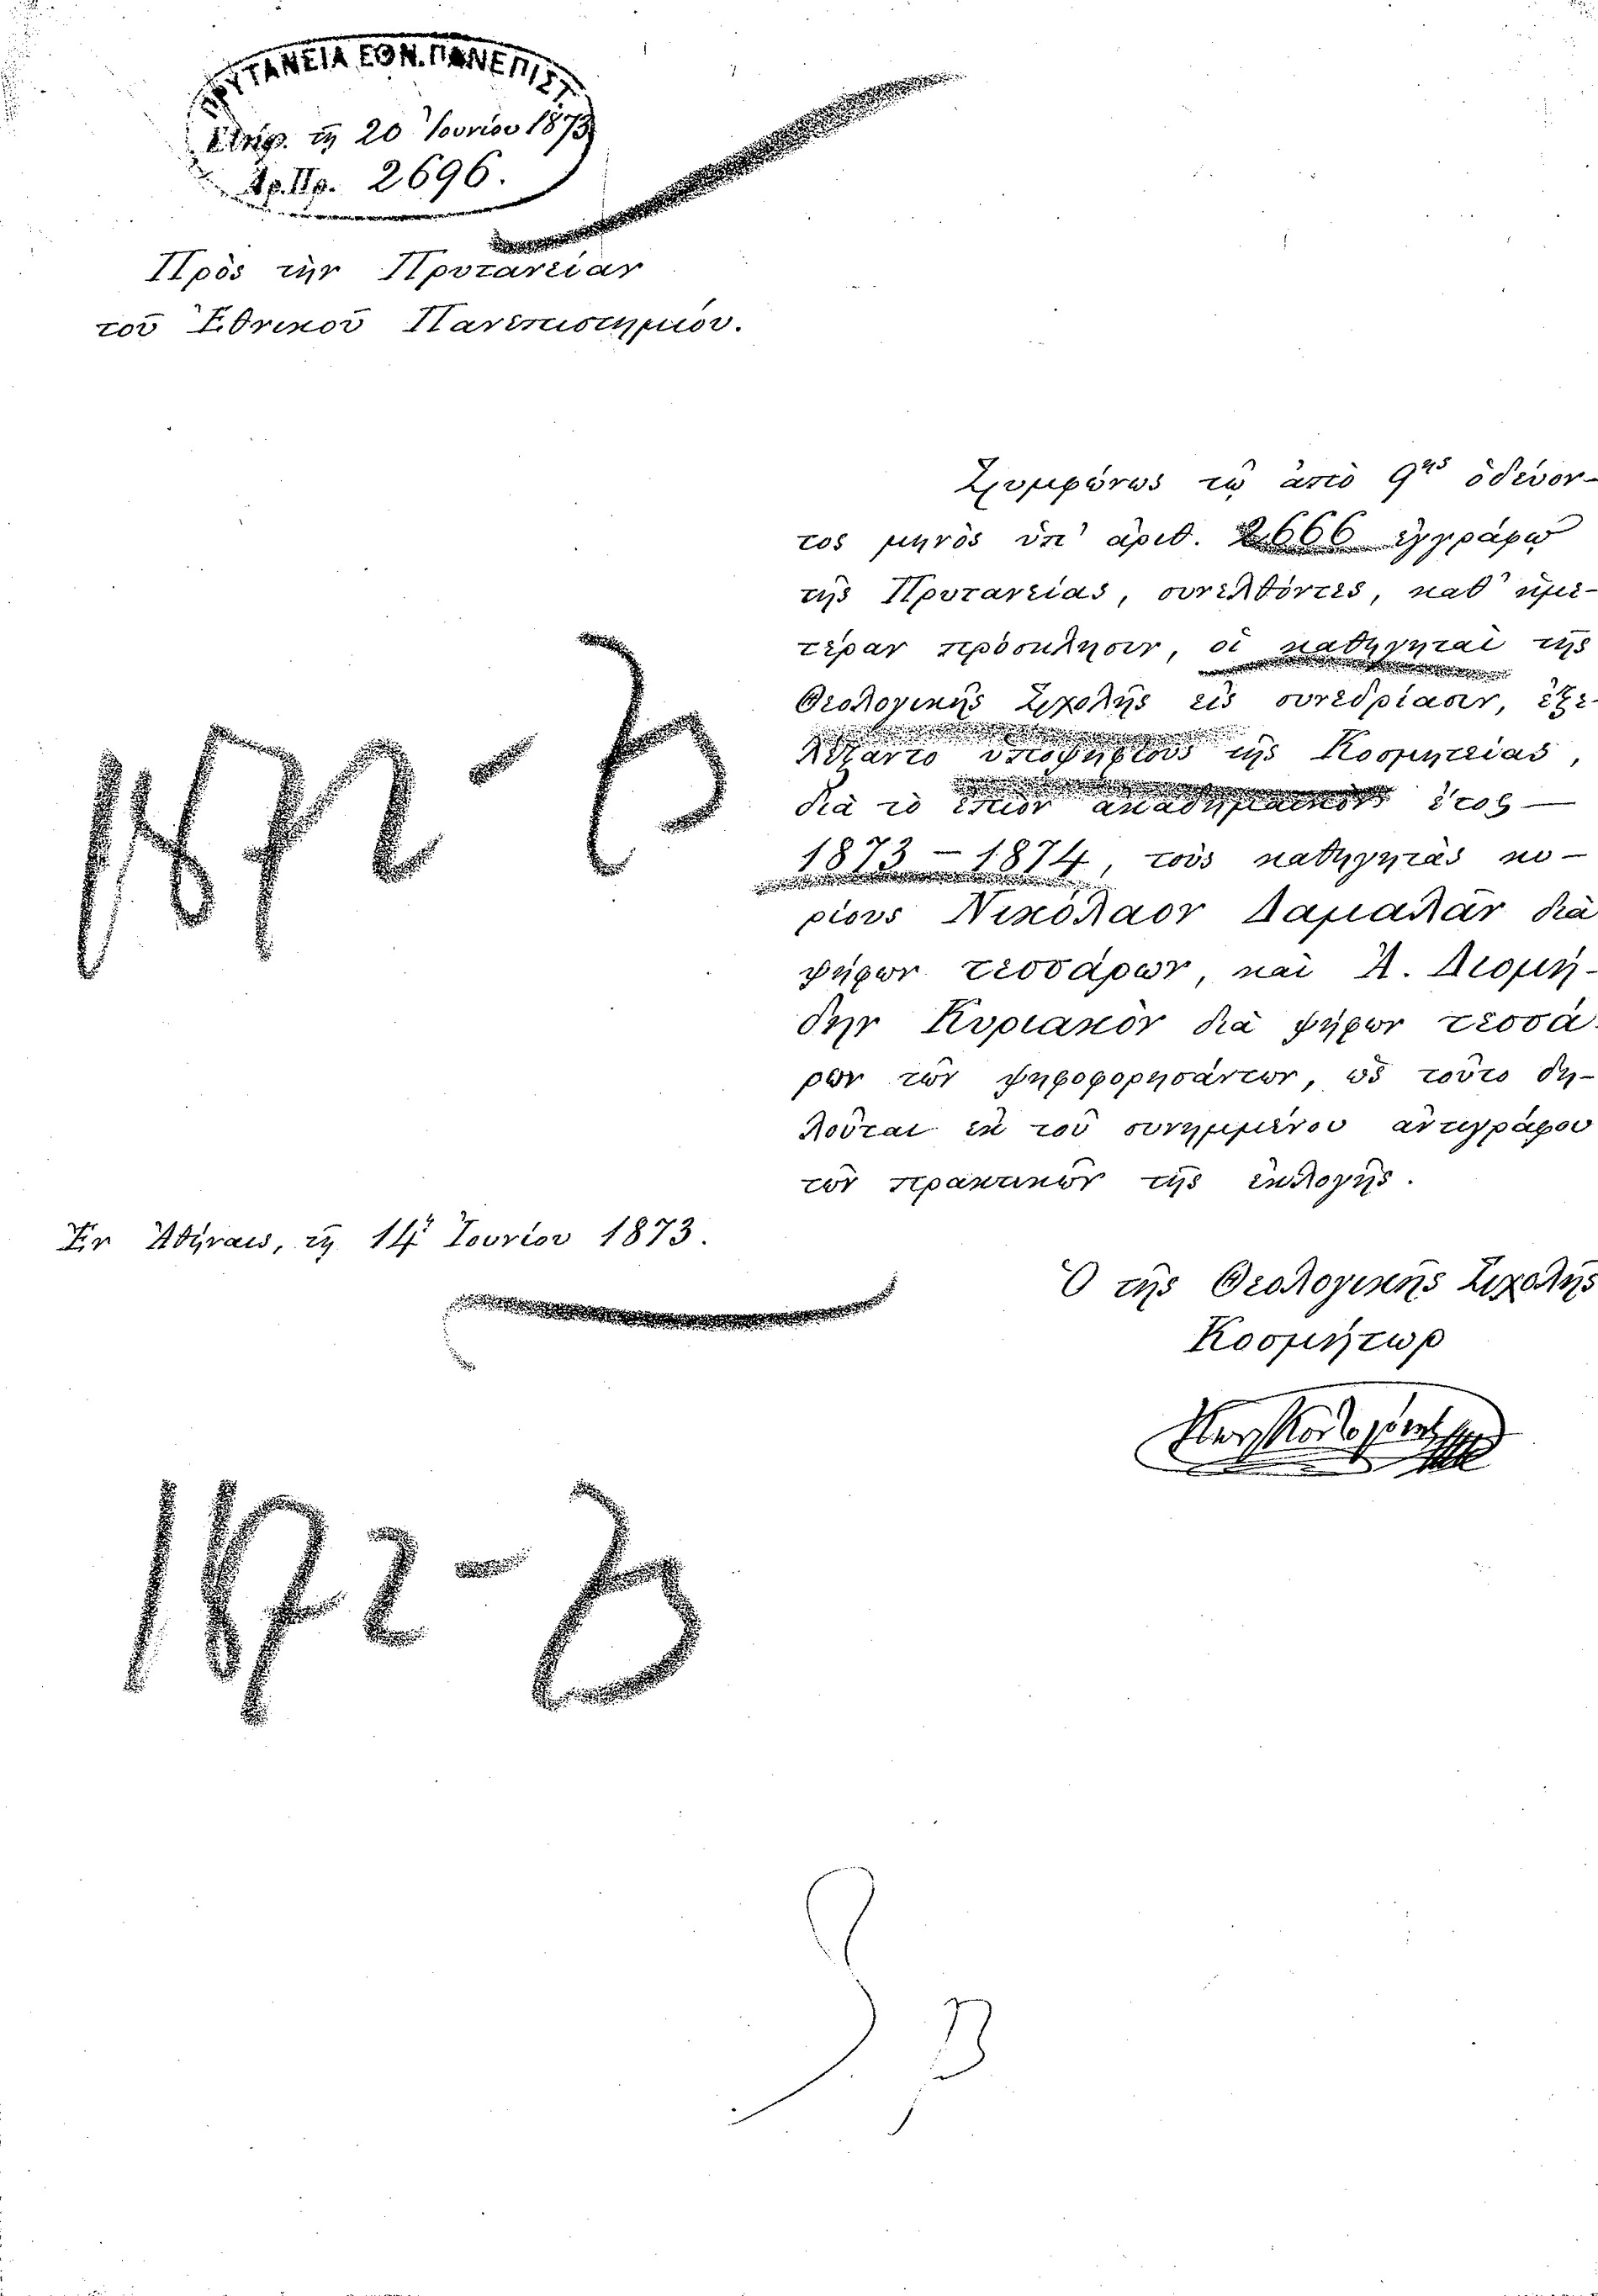 ΠΡΥΤΑΝΕΙΑ ΕΘΝ. ΠΑΝΕΠΙΣΤ.
τῇ 20 Ἰουνίου 1873
Ἀρ. Πρ. 2696.
Πρὸς τὴν Πρυτανείαν
τοῦ Ἐθνικοῦ Πανεπιστημίου.
Συμφώνως τῷ ἀπὸ 9ης ὁδεύον-
τος μηνὸς ὑπ' ἀριθ. 2666 ἐγγράφῳ
τῆς Πρυτανείας, συνελθόντες, καθ' ἡμε-
τέραν πρόσκλησιν, οἱ καθηγηταὶ τῆς
Θεολογικῆς Σχολῆς εἰς συνεδρίασιν, ἐξε-
λέξαντο ὑποψηφίους τῆς Κοσμητείας,
διὰ τὸ ἐπιὸν ἀκαδημαϊκὸν ἔτος —
1873 – 1874, τοὺς καθηγητὰς κυ-
ρίους Νικόλαον Δαμαλᾶν διὰ
ψήφων τεσσάρων, καὶ Ἀ. Διομή-
δην Κυριακὸν διὰ ψήφων τεσσά-
ρων τῶν ψηφοφορησάντων, ὡς τοῦτο δη-
λοῦται ἐκ τοῦ συνημμένου ἀντιγράφου
τῶν πρακτικῶν τῆς ἐκλογῆς.
Ἐν Ἀθήναις, τῇ 14ῃ Ἰουνίου 1873.
Ὁ τῆς Θεολογικῆς Σχολῆς
Κοσμήτωρ
1872-3
1872-3